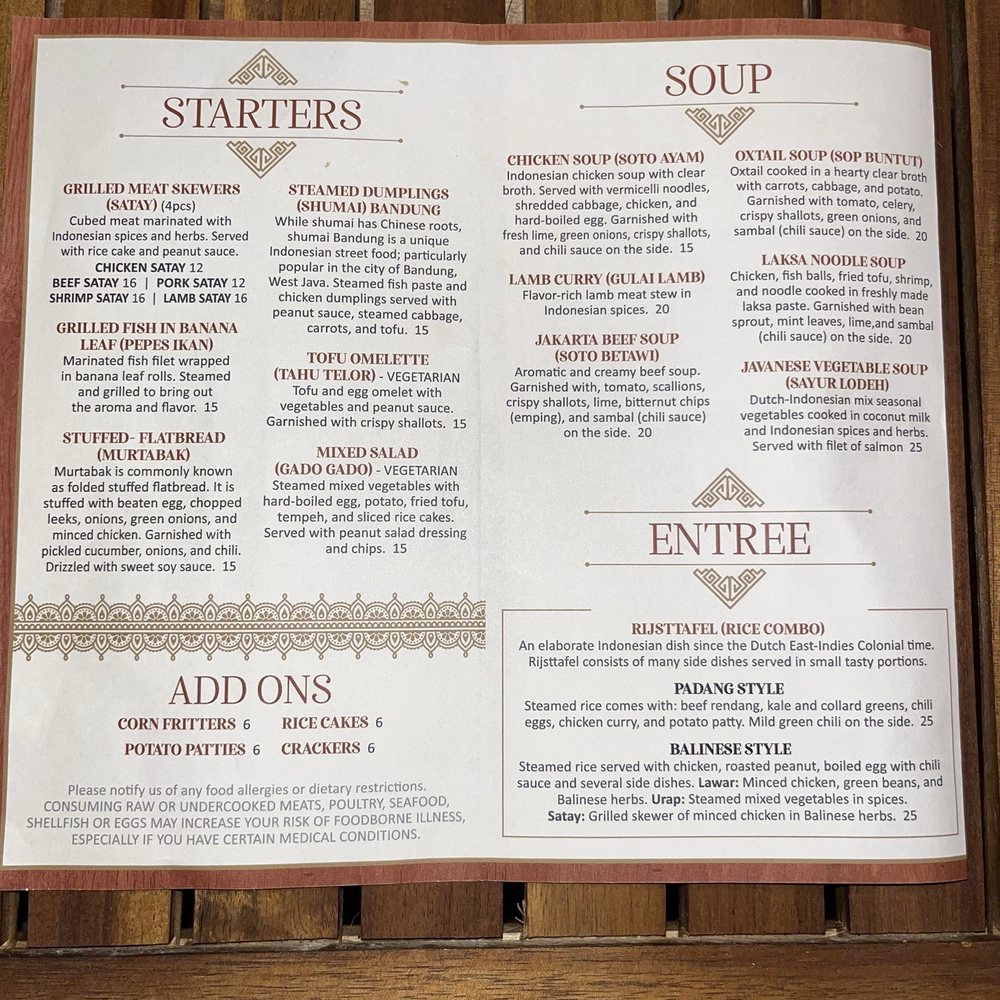 STARTERS
GRILLED MEAT SKEWERS
(SATAY) (4pcs)
Cubed meat marinated with
Indonesian spices and herbs. Served
with rice cake and peanut sauce.
CHICKEN SATAY 12
BEEF SATAY 16 | PORK SATAY 12
SHRIMP SATAY 16 | LAMB SATAY 16
GRILLED FISH IN BANANA
LEAF (PEPES IKAN)
Marinated fish filet wrapped
in banana leaf rolls. Steamed
and grilled to bring out
the aroma and flavor. 15
STUFFED- FLATBREAD
(MURTABAK)
Murtabak is commonly known
as folded stuffed flatbread. It is
stuffed with beaten egg, chopped
leeks, onions, green onions, and
minced chicken. Garnished with
pickled cucumber, onions, and chili.
Drizzled with sweet soy sauce. 15
STEAMED DUMPLINGS
(SHUMAI) BANDUNG
While shumai has Chinese roots,
shumai Bandung is a unique
Indonesian street food; particularly
popular in the city of Bandung,
West Java. Steamed fish paste and
chicken dumplings served with
peanut sauce, steamed cabbage,
carrots, and tofu. 15
TOFU OMELETTE
(TAHU TELOR) - VEGETARIAN
Tofu and egg omelet with
vegetables and peanut sauce.
Garnished with crispy shallots. 15
MIXED SALAD
(GADO GADO) - VEGETARIAN
Steamed mixed vegetables with
hard-boiled egg, potato, fried tofu,
tempeh, and sliced rice cakes.
Served with peanut salad dressing
and chips. 15
ADD ONS
CORN FRITTERS 6 RICE CAKES 6
POTATO PATTIES 6 CRACKERS 6
Please notify us of any food allergies or dietary restrictions.
CONSUMING RAW OR UNDERCOOKED MEATS, POULTRY, SEAFOOD,
SHELLFISH OR EGGS MAY INCREASE YOUR RISK OF FOODBORNE ILLNESS,
ESPECIALLY IF YOU HAVE CERTAIN MEDICAL CONDITIONS.
SOUP
CHICKEN SOUP (SOTO AYAM)
Indonesian chicken soup with clear
broth. Served with vermicelli noodles,
shredded cabbage, chicken, and
hard-boiled egg. Garnished with
fresh lime, green onions, crispy shallots,
and chili sauce on the side. 15
LAMB CURRY (GULAI LAMB)
Flavor-rich lamb meat stew in
Indonesian spices. 20
JAKARTA BEEF SOUP
(SOTO BETAWI)
Aromatic and creamy beef soup.
Garnished with, tomato, scallions,
crispy shallots, lime, bitternut chips
(emping), and sambal (chili sauce)
on the side. 20
OXTAIL SOUP (SOP BUNTUT)
Oxtail cooked in a hearty clear broth
with carrots, cabbage, and potato.
Garnished with tomato, celery,
crispy shallots, green onions, and
sambal (chili sauce) on the side. 20
LAKSA NOODLE SOUP
Chicken, fish balls, fried tofu, shrimp,
and noodle cooked in freshly made
laksa paste. Garnished with bean
sprout, mint leaves, lime,and sambal
(chili sauce) on the side. 20
JAVANESE VEGETABLE SOUP
(SAYUR LODEH)
Dutch-Indonesian mix seasonal
vegetables cooked in coconut milk
and Indonesian spices and herbs.
Served with filet of salmon 25
ENTREE
RIJSTTAFEL (RICE COMBO)
An elaborate Indonesian dish since the Dutch East-Indies Colonial time.
Rijsttafel consists of many side dishes served in small tasty portions.
PADANG STYLE
Steamed rice comes with: beef rendang, kale and collard greens, chili
eggs, chicken curry, and potato patty. Mild green chili on the side. 25
BALINESE STYLE
Steamed rice served with chicken, roasted peanut, boiled egg with chili
sauce and several side dishes. Lawar: Minced chicken, green beans, and
Balinese herbs. Urap: Steamed mixed vegetables in spices.
Satay: Grilled skewer of minced chicken in Balinese herbs. 25